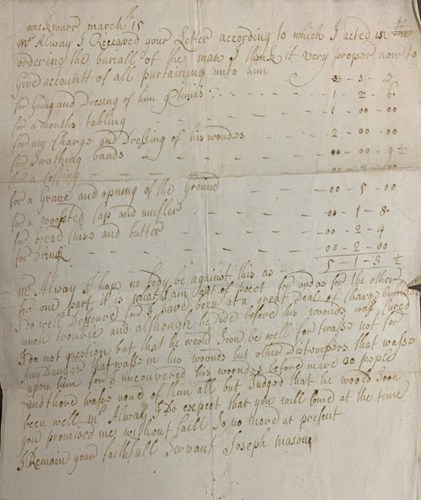 march 15
Mr Alway I Receaved your Letter according to which I acted in
ordering the buriall of the man I think it very proper now to
give accountt of all purtaining unto him
for going and Dresing of him times - 1 - 2 - 6
for a months tabling - 1 - 00 - 00
for my Charge and Dressing of his wondes - 2 - 00 - 00
for Swathing bands - 00 - 00 - 9 ½
for a Coffing
for a Grave and opning of the Ground - 00 - 5 - 00
for a woolsted Cap and mufler - 00 - 1 - 8
for bread Chise and butter - 00 - 2 - 4
for Drink - 00 - 2 - 00
5 - 1 - 3 ½
Mr Alway I hope no body be against this as for
for one part it is what I am out of pocet for and as for the other
I do well Desearve for I have been at a great Deal of Charg and
much trouble and although he Died before his wondes was Cured
I Do not question but that he would soon be well for twasse not for
any Danger that wasse in his wounds but other Distempers that wasse
upon him for I uncovered his woundes before more 30 people
and there wase none of them all but Judged that he would soon
been well Mr Alway I Do except that you will Come at the time
you promised me without faill So no more at present
I Remain your faithfull Servant Joseph mason